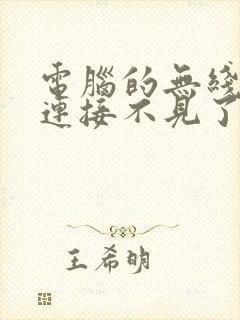 電腦的無綫
連接不見了
王希明